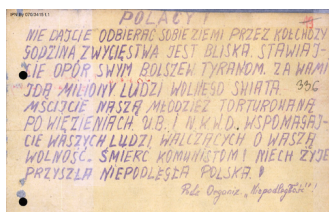 IPN By 070/3418 t.1
POLACY!
NIE DAJCIE ODBIERAĆ SOBIE ZIEMI PRZEZ KOŁCHOZY
GODZINA ZWYCIĘSTWA JEST BLISKA. STAWIAJ-
CIE OPÓR SWYM BOLSZEW. TYRANOM. ZA WAMI
IDĄ MILIONY LUDZI WOLNEGO ŚWIATA
336
MŚCIJCIE NASZĄ MŁODZIEŻ TORTUROWANĄ
PO WIĘZIENIACH U.B. I N.K.W.D. WSPOMAGAJ-
CIE WASZYCH LUDZI WALCZĄCYCH O WASZĄ
WOLNOŚĆ. ŚMIERĆ KOMUNISTOM! NIECH ŻYJE
PRZYSZŁA NIEPODLEGŁA POLSKA!
Organiz. "Niepodległość"!